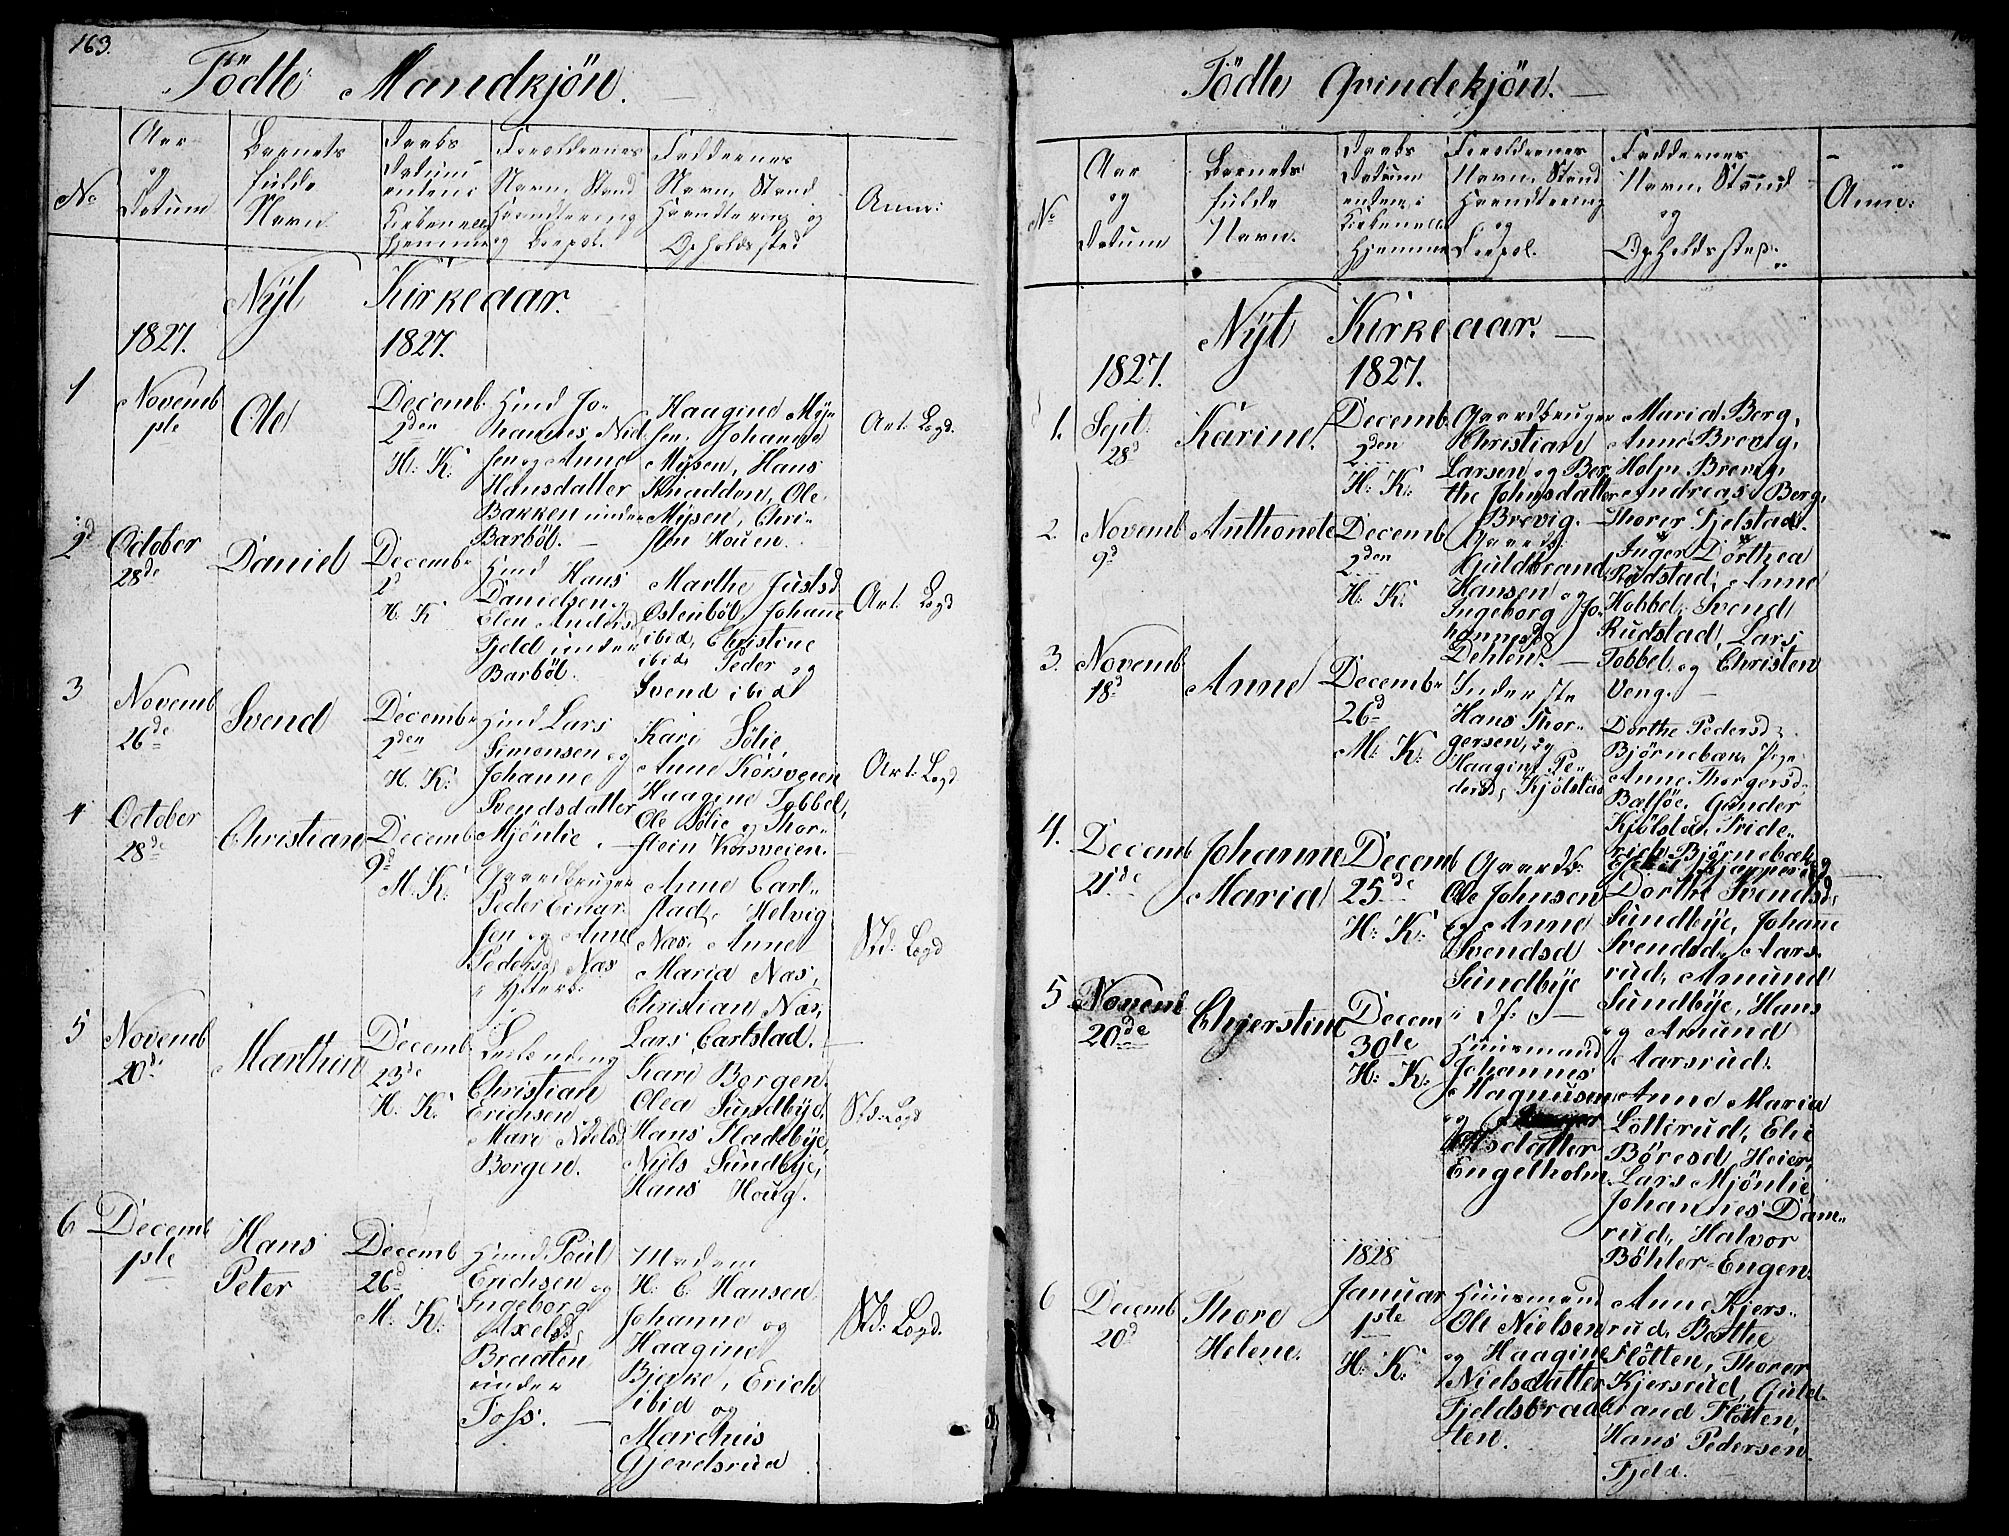 163.
Födte Mandkjön.
No
Aar
og
Datum
Barnets
fulde
Navn.
Daabs
Datum
enten i
Kirken ell
Hjemme
Foreldrenes
Navn, Stand
Haandtering
og Boepol.
Faddernes
Navn, Stand
Haandtering og
Opholdssted
Anm:
Nÿt Kirkeaar.
1827.
1827.
1
Novemb
1ste
Ole
Decemb.
2den
H: K:
Huusd Jo-
hannes Nid-
sen og Anne
Hansdatter
Bakken under
Barböl.
Haagine My-
sen, Johanne
Mysen, Hans
Knaddon, Ole
Mysen, Chri-
sten Houen.
Art: Logd.
2d
October
28de
Daniel
Decemb.
2d
H: K
Huusd Hans
Danielsen og
Elen Andersd
Fjeld under
Barböl.
Marthe Justsd
Ostenböl, Johane
ibid, Christine
ibid Peder og
Svend ibid
Art: Logd
3
Novemb
26de
Svend
Decemb.
2den
H. K:
Huusd Lars
Simonsen og
Johanne
Svendsdatter
Mjönlie.
Kari Sölie,
Anne Korsveien
Haagine Tobbel,
Ole Sölie og Thor-
stein Korsveien.
Art: Logd
4
October
28de
Christian
Decemb
9d
M. K:
Gaardbruger
Peder Einar-
sen og Anne
Pedersd Næs
Anne Carl-
stad, Helvig
Næs. Anne
Maria Næs,
Christian Næs,
Lars Carlstad.
Sk: Logd
5
Novemb
20d
Marthin
Decemb.
23de
H. K:
Christian
Erichsen og
Mari Nielsd
Borgen.
Kari Borgen.
Olea Sundbÿe,
Hans Fladebÿe,
Niels Sundbÿe,
Hans Houg.
Sk: Logd
6
Decemb
1ste
Hans
Peter
Decemb
26d
M: K:
Huusd Poul
Erichsen og
Ingeborg
Axelsd
Braaten
under
Foss.
Madam
H. C. Hansen
Johanne og
Haagine
Bjerke, Erich
ibid og
Marchus
Gjevelsrud
Sk: Logd.
Födte Qvindekjön.
No
Aar
og
Datum
Barnets
fulde
Navn.
Daabs
Datum
enten i
Kirken ell
Hjemme
Foreldrenes
Navn, Stand
Haandtering
og
Boepol.
Faddernes
Navn, Stand
og
Opholdssted.
Anm:
Nÿt Kirkeaar.
1827.
1827.
1.
Sept:
28d
Karine.
Decemb
2den
H: K:
Gaardbruger
Christian
Larsen og Ber
the Johnsdatter
Brevig.
Maria Berg,
Anne Brevig,
Holm Brevig,
Andreas Berg,
Thorer Fjelstad.
2.
Novemb
9d
Anthonete
Decemb
2den
H: K:
Gaardb:
Guldbrand
Hansen og
Ingeborg Jo-
hannesd
Dehlen.
Inger Dorthea
Rudstad, Anne
Hobbel, Svend
Rudstad, Lars
Tobbel og Christen
Veng.
3.
Novemb
18d
Anne
Decemb.
26d
M: K:
Inderste
Hans Thor-
gersen, og
Haagine Pe-
dersd, Kjölstad
Dorthe Pedersd
Björnebæk, Pige
Anne Thorgersd,
Bælföe, Gunder
Kjölstad, Fride-
rich Björnebæk
4.
Decemb
21de
Johanne
Maria
Decemb
25de
H: K:
Gaardb:
Ole Johnsen
og Anne
Svendsd
Sundbÿe
Dorthe Svendsd,
Sundbÿe, Johane
Svendsd, Aars-
rud, Amund
Sundbÿe, Hans
og Amund
Aarsrud.
5
Novem
20de
Chjerstine
Decem
30te
H: K:
Huusmand
Johannes
Magnusen
og
Olsdatter
Engelholm
Anne Maria
Lotterud, Elie
Böresd, Heier,
Lars Mjönlie,
Johannes Dam-
rud, Halvor
Böhler-Engen.
6
Decemb
20d
Thore
Helene.
1828
Januar
1ste
H: K:
Huusmand
Ole Nielsen
og Haagine
Nielsdatter
Fjeldsbraa-
ten.
Anne Kjers-
rud, Berthe
Flötten, Thorer
Kjersrud, Guld-
brand Flötten,
Hans Pedersen
Fjeld.